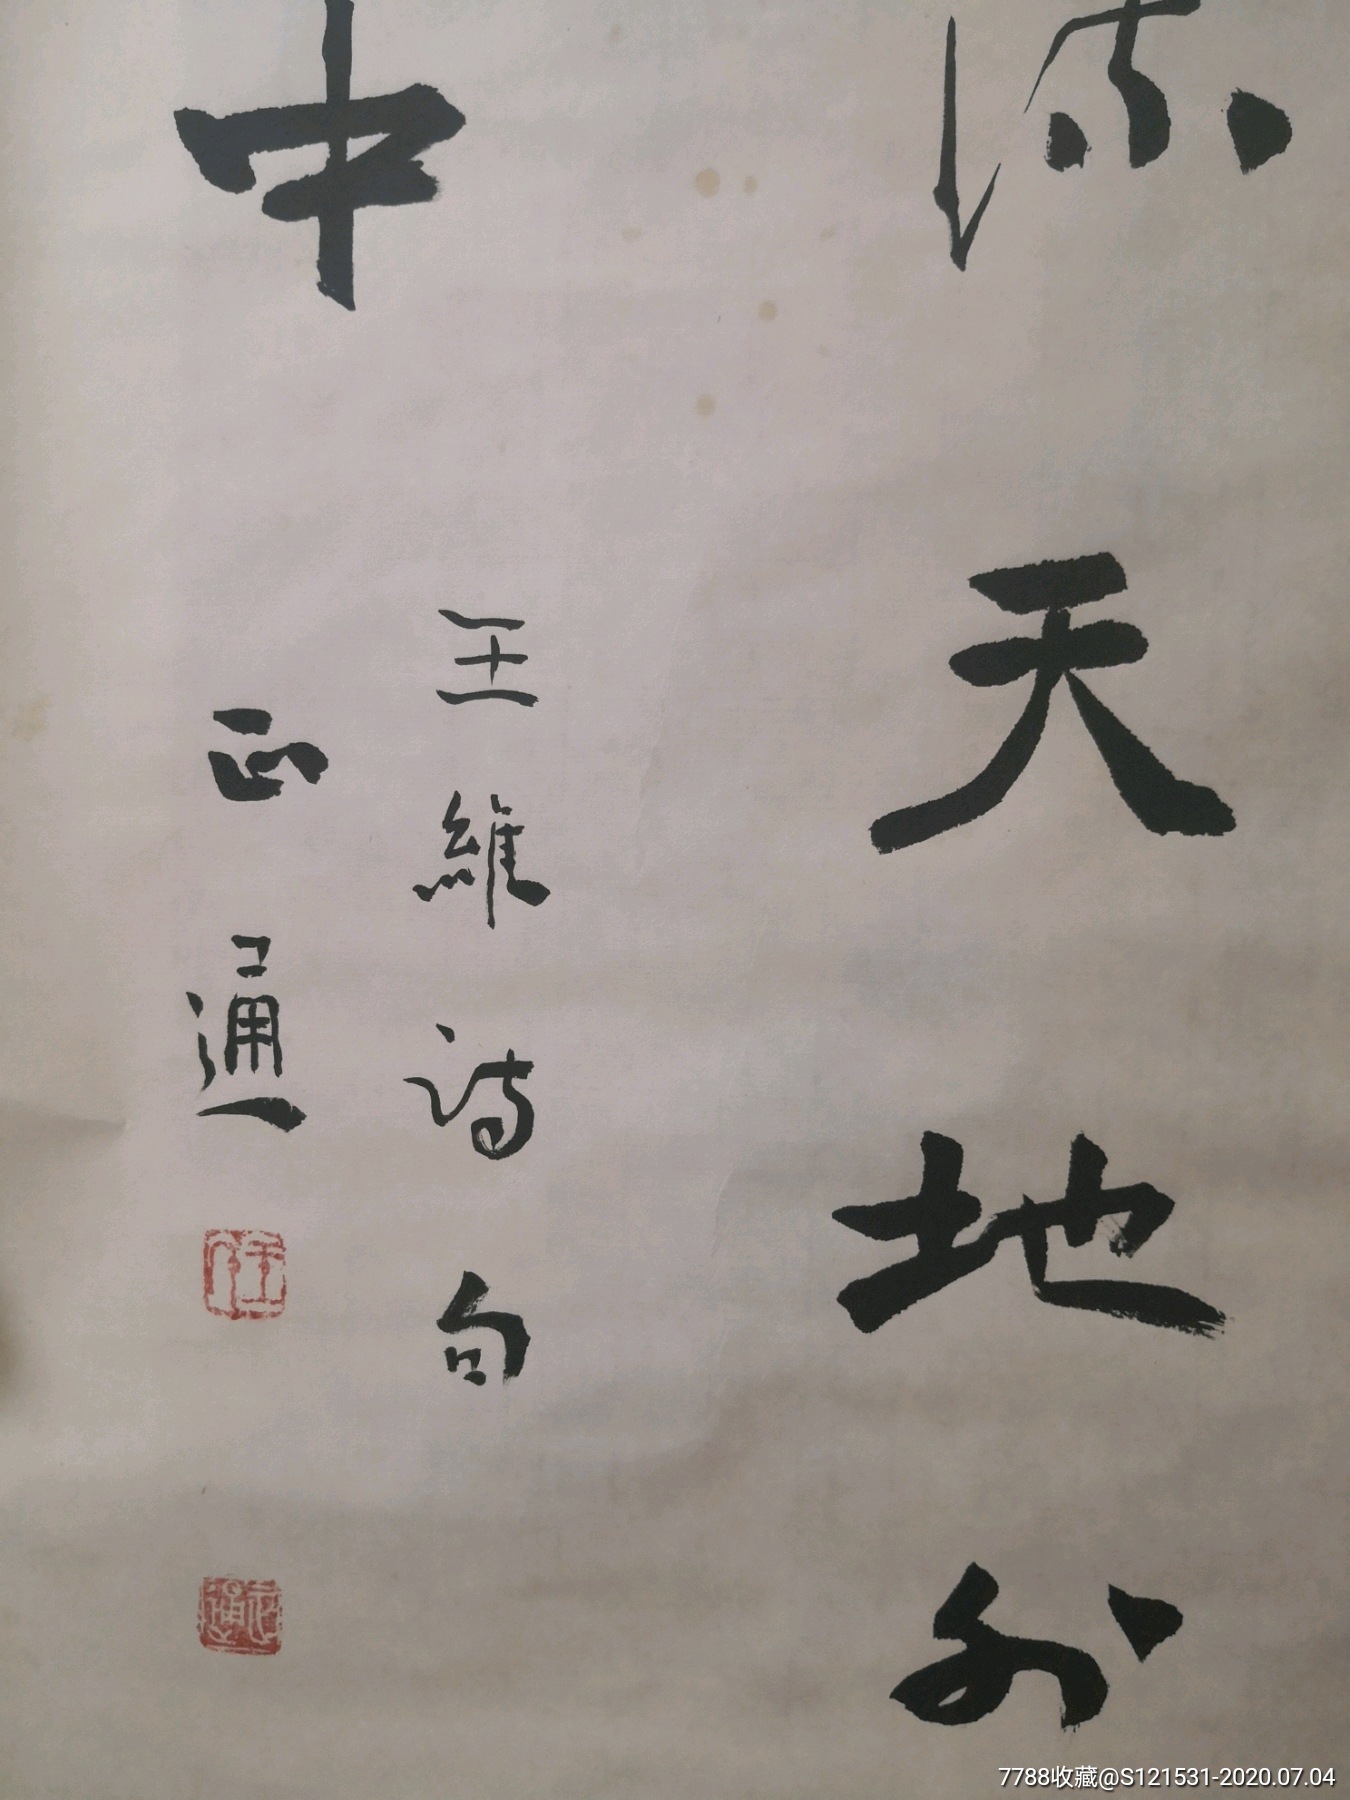 流天地外
中
王維詩句
正通
7788收藏@S121531-2020.07.04